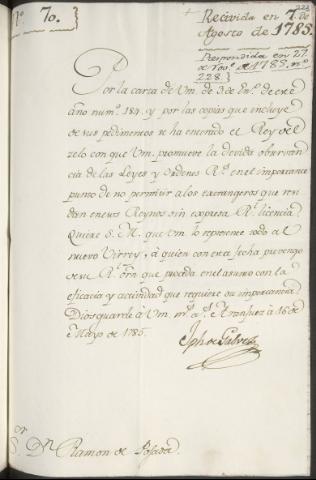 N.º 70.
223
+ Recivida en 7. de
Agosto de 1785.
Respondida en 27.
de 1785. n.º
228.
Por la carta de Vm. de 3 de En.º de este
año num.º 184. y por las copias que incluye
de sus pedimentos se ha enterado el Rey del
zelo con que Vm. promueve la devida observan
cia de las Leyes y Ordenes R.s en el importante
punto de no permitir a los extrangeros que resi
dan en estos Reynos sin expresa R.l licencia.
Quiere S. M. que Vm. lo represente todo al
nuevo Virrey, à quien con esta fecha prevengo
de su R.l orn que proceda en el asunto con la
eficacia y actividad que requiere su importancia.
Dios guarde à Vm. m.s a.s Aranjuez à 16 de
Mayo de 1785.
Jph de Galvez
S.or D.n Ramon de Posada.